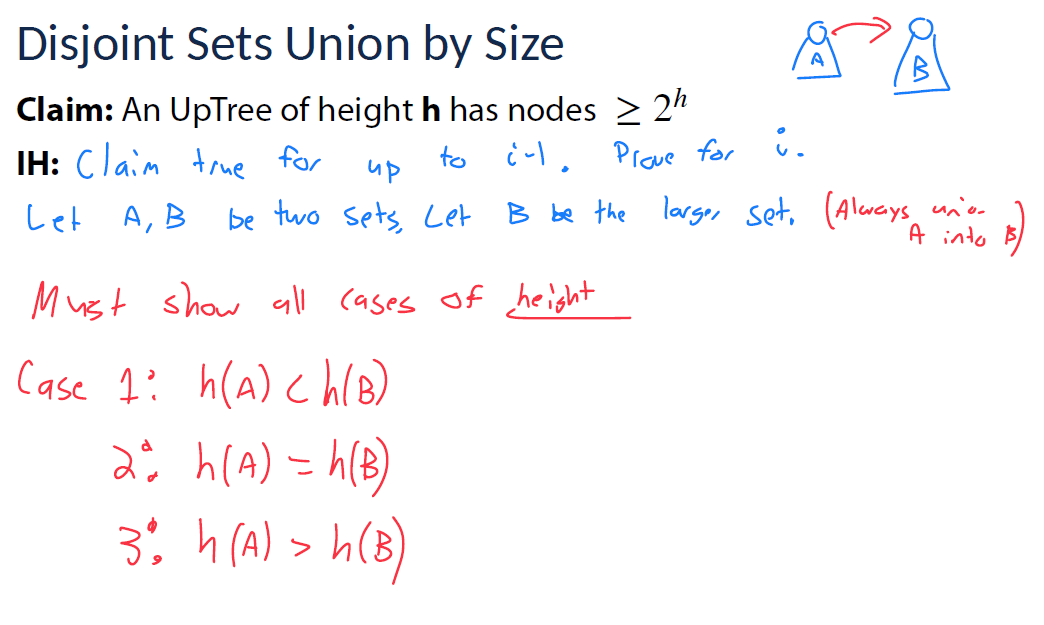 Disjoint Sets Union by Size
A B
Claim: An UpTree of height h has nodes ≥ 2^h
IH: Claim true for up to i-1. Prove for i.
Let A, B be two sets, Let B be the larger set. (Always union
A into B)
Must show all cases of height
Case 1: h(A) < h(B)
2: h(A) = h(B)
3: h(A) > h(B)